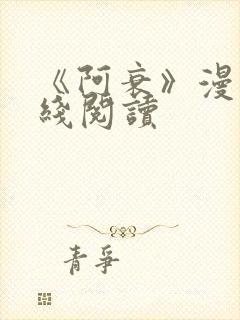 《阿衰》漫
綫閱讀
青爭